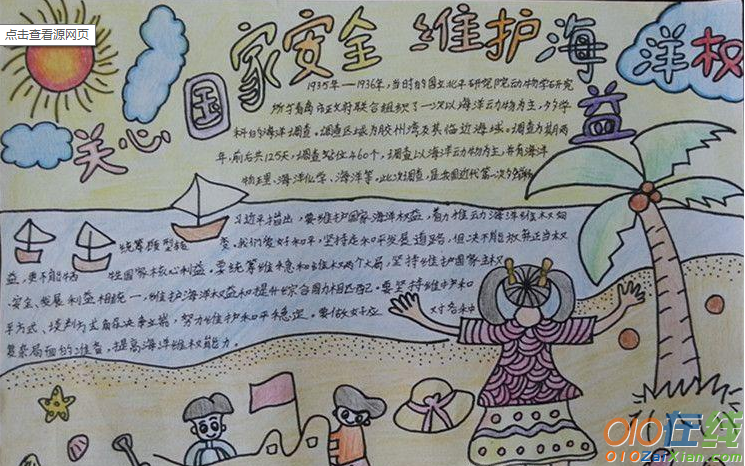 点击查看源网页
关心国家安全 维护海洋权益
1935年—1936年，当时的国立北平研究院动物学研究
所与青岛市政府联合组织了一次以海洋动物为主，多学
科的海洋调查。调查区域为胶州湾及其临近海域。调查为期两
年，前后共125天，调查站位460个，调查以海洋动物为主，并有海洋
物理、海洋化学、海洋等。此次调查，是我国近代第一次多学科
习近平指出，要维护国家海洋权益，着力推动海洋维权向
统筹顾型转变，我们爱好和平，坚持走和平发展道路，但决不能放弃正当权
益，更不能牺牲国家核心利益，要统筹维稳和维权两个大局，坚持维护国家主权
、安全、发展利益相统一，维护海洋权益和提升综合国力相匹配。要坚持和
平方式、谈判方式解决争端，努力维护和平稳定。要做好应对各种
复杂局面的准备，提高海洋维权能力
010在线
010ZaiXian.com